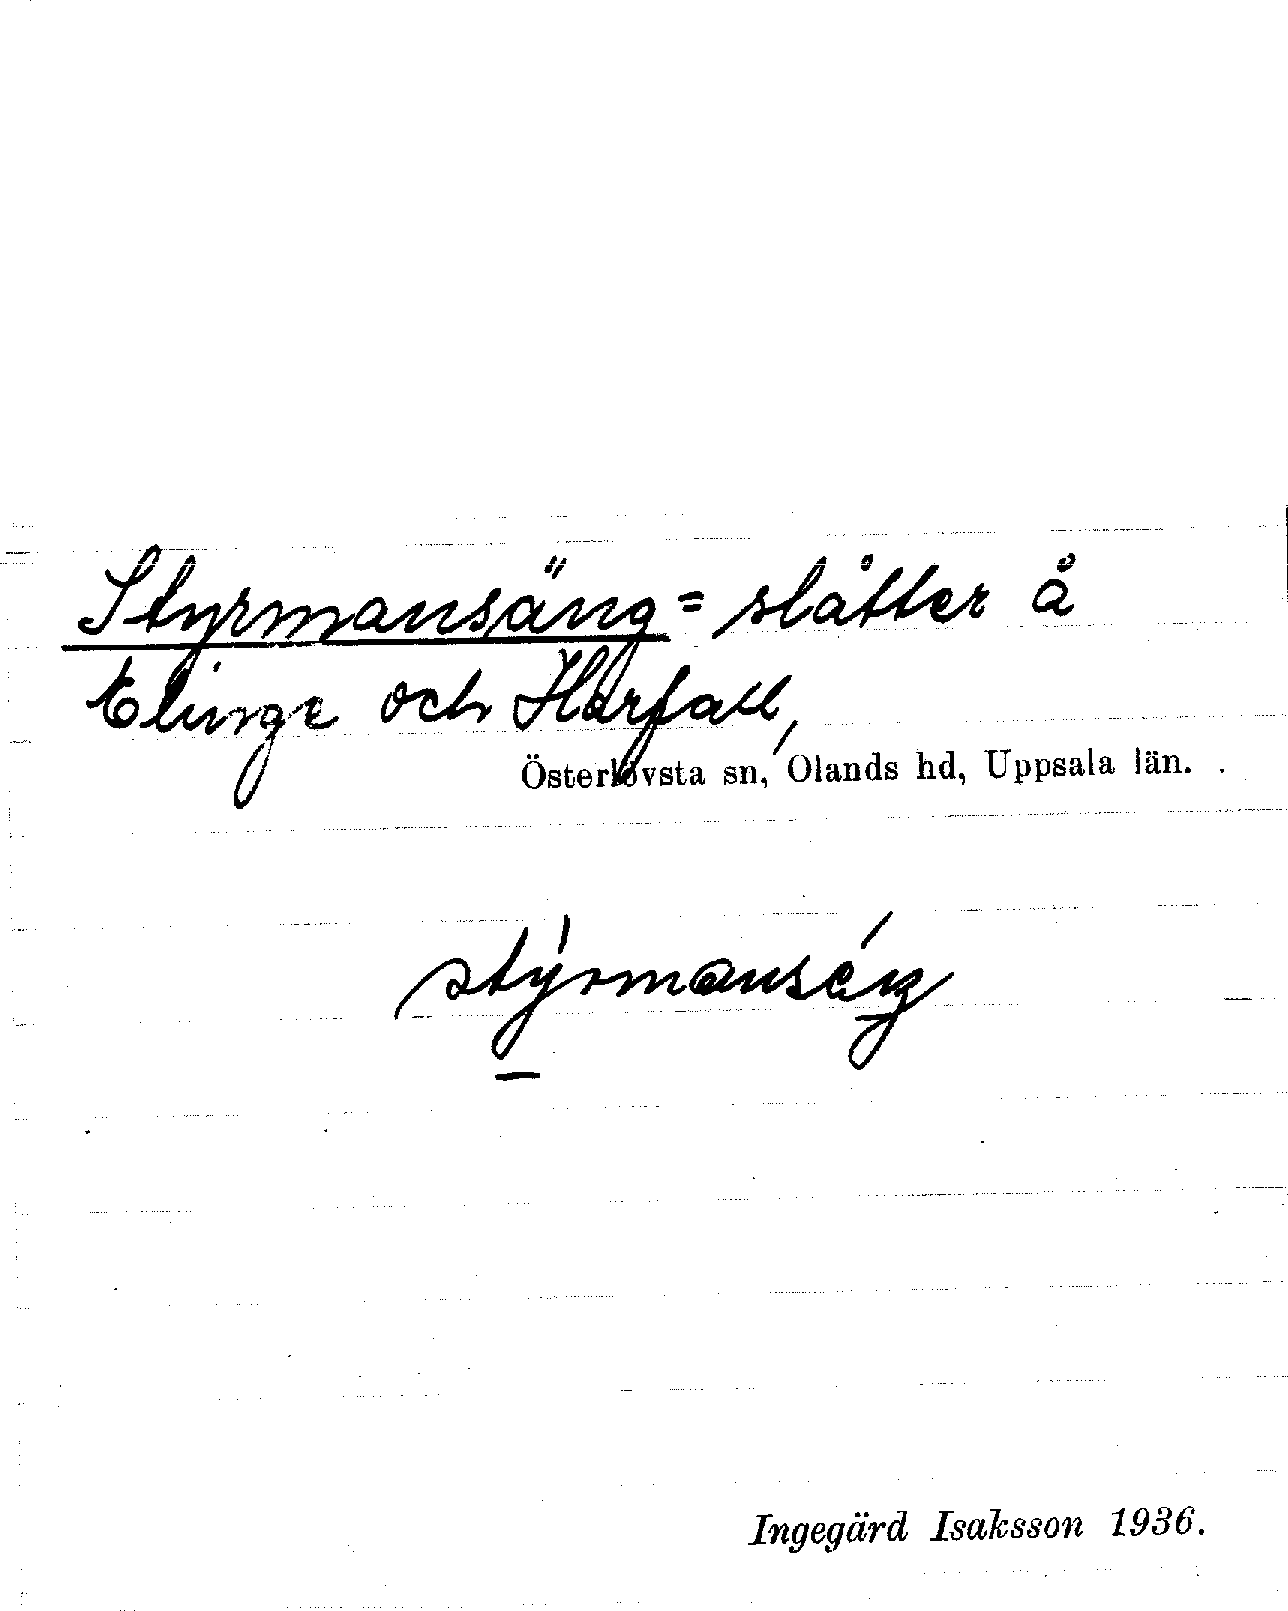 Styrmansäng = slåtter å
Elinge och Harfall,
Österlövsta sn, Olands hd, Uppsala län.
Ingegärd Isaksson 1936.